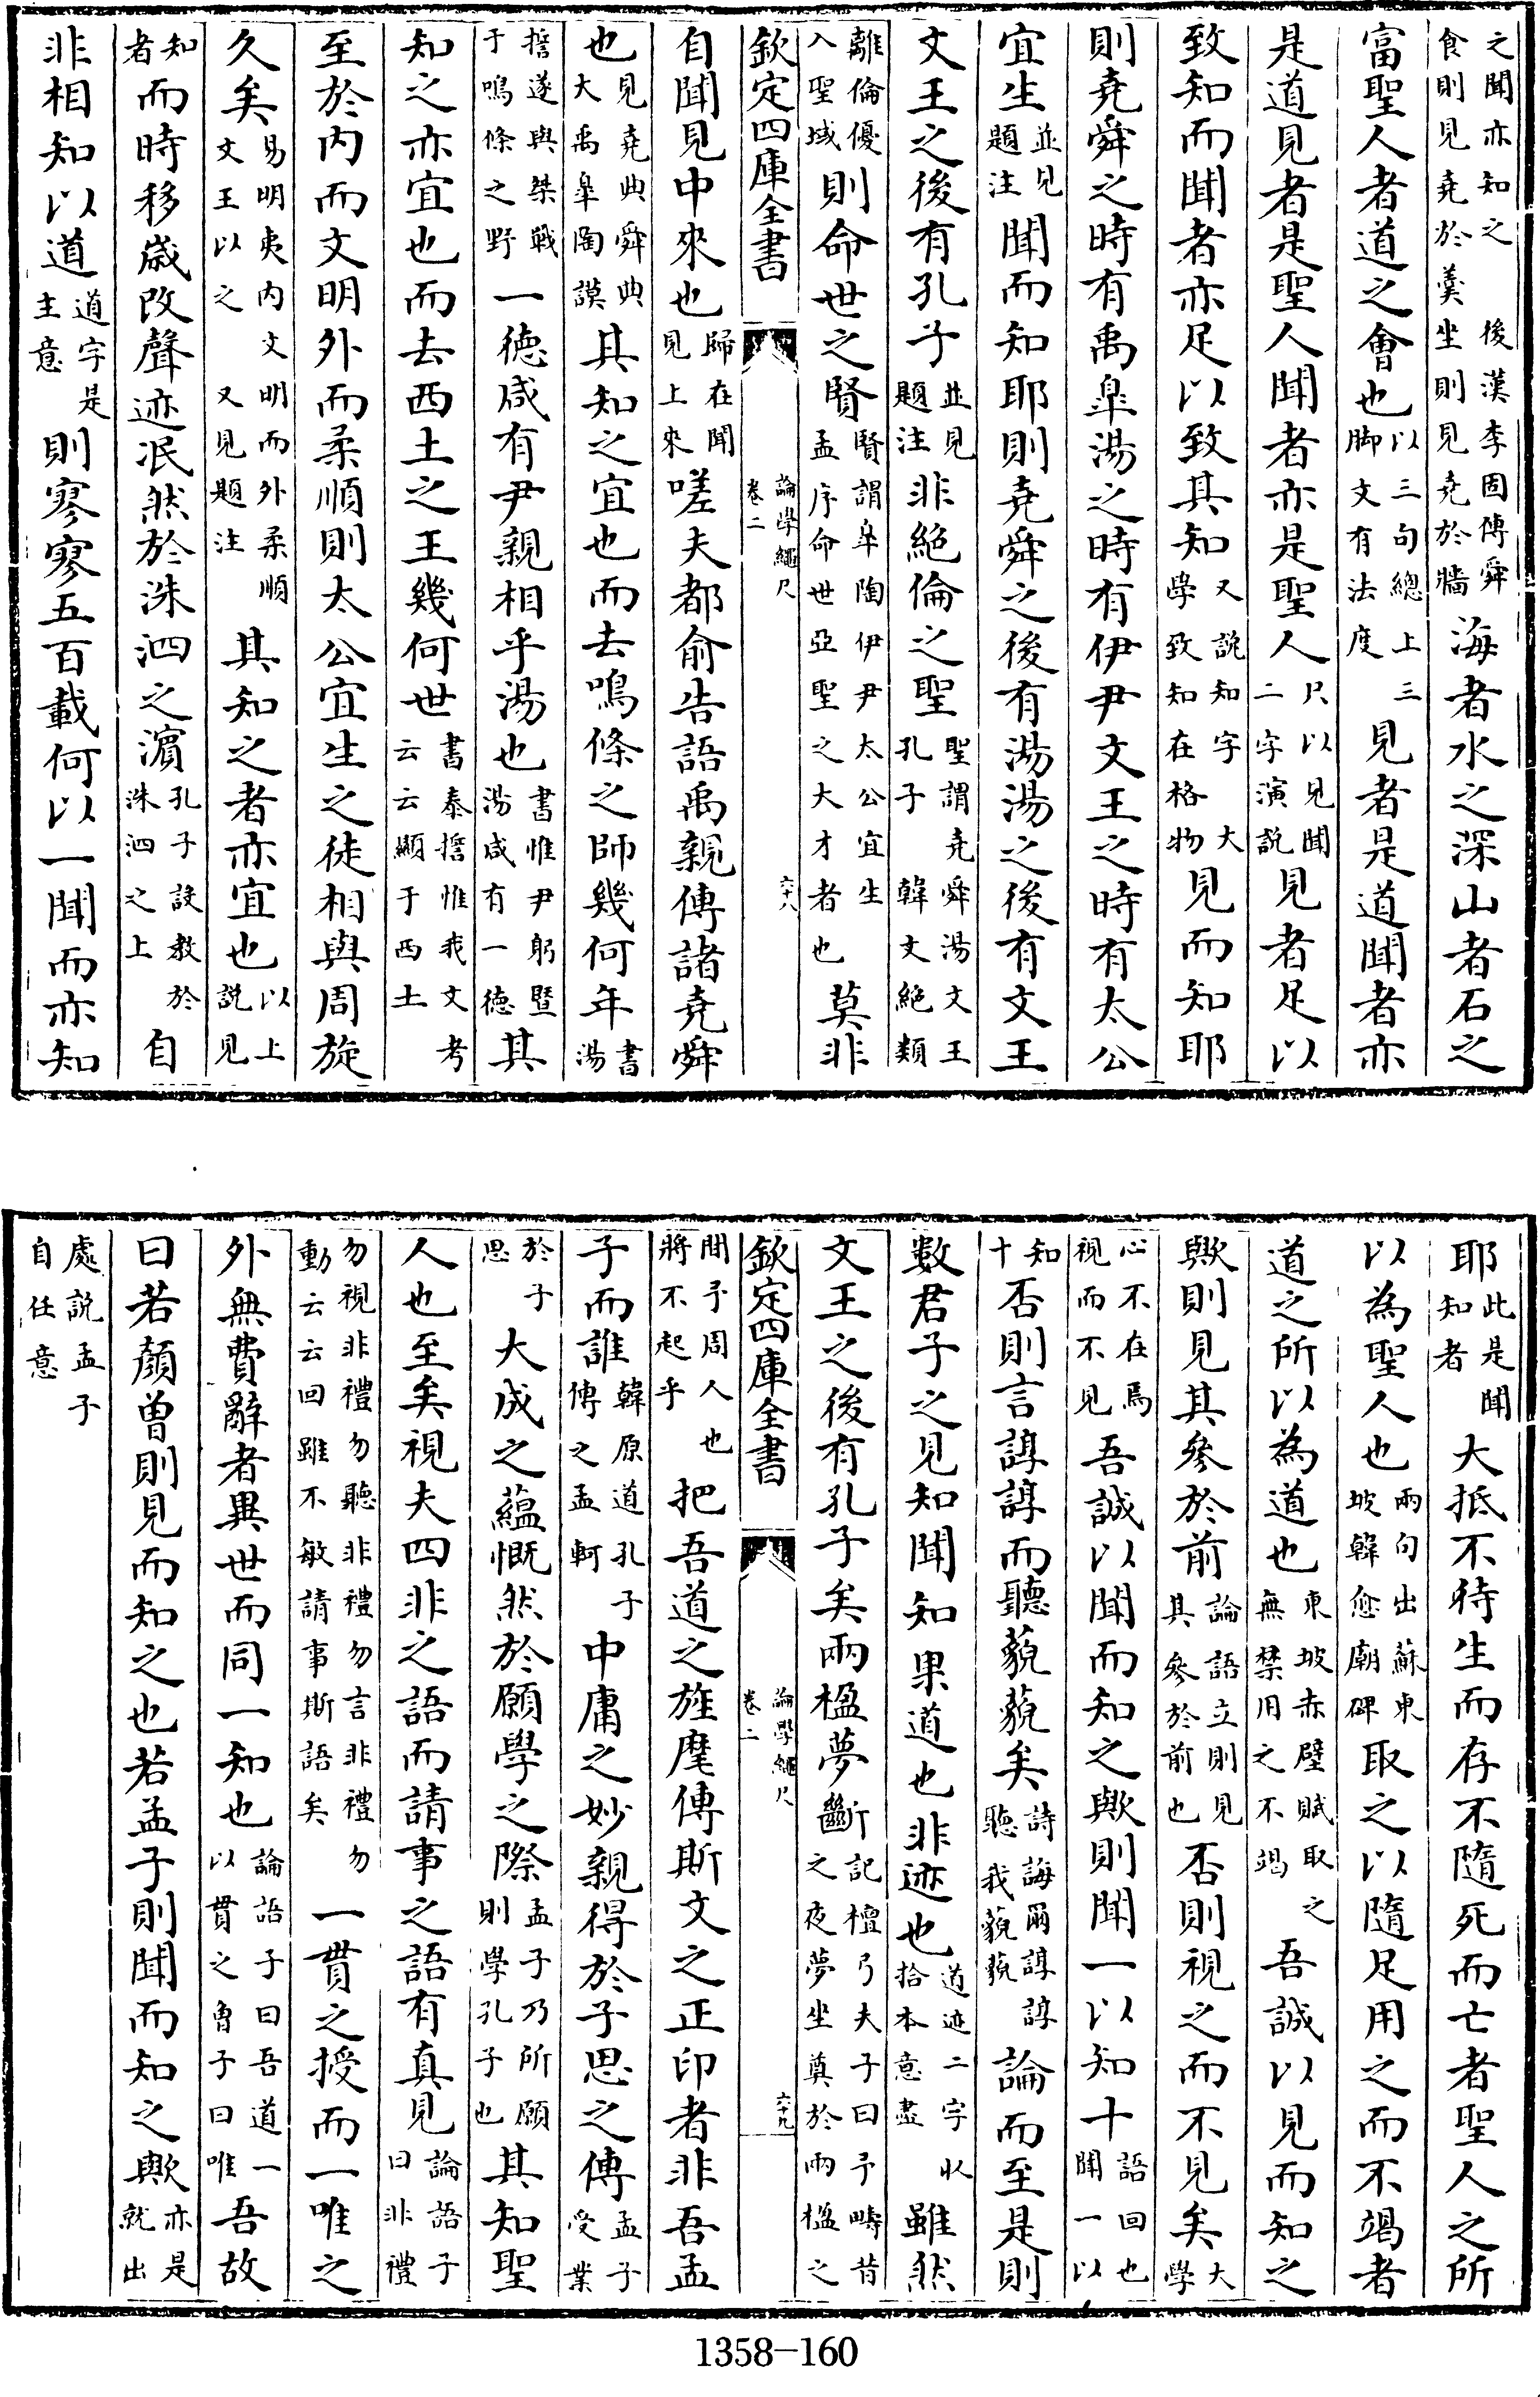 之聞亦知之　後漢李固傳舜食則見堯於羹坐則見堯於牆海者水之深山者石之
富聖人者道之會也以三句總上三脚文有法度見者是道聞者亦
是道見者是聖人聞者亦是聖人只以見聞二字演説見者足以
致知而聞者亦足以致其知又説知字大學致知在格物見而知耶
則堯舜之時有禹臯湯之時有伊尹文王之時有太公
宜生並見題注聞而知耶則堯舜之後有湯湯之後有文王
文王之後有孔子並見題注非絶倫之聖聖謂堯舜湯文王孔子　韓文絶類
離倫優入聖域則命世之賢賢謂臯陶伊尹太公宜生孟序命世亞聖之大才者也莫非
欽定四庫全書
論學繩尺卷二
六十八
自聞見中來也歸在聞見上來嗟夫都俞告語禹親傳諸堯舜
也見堯典舜典大禹臯陶謨其知之宜也而去鳴條之師幾何年書湯
誓遂與桀戰于鳴條之野一德咸有尹親相乎湯也書惟尹躬曁湯咸有一德其
知之亦宜也而去西土之王幾何世書泰誓惟我文考云云顯于西土
至於内而文明外而柔順則太公宜生之徒相與周旋
久矣易明夷内文明而外柔順文王以之　又見題注其知之者亦宜也以上説見
知者而時移歲改聲迹泯然於洙泗之濵孔子設教於洙泗之上自
非相知以道道字是主意則寥寥五百載何以一聞而亦知
耶此是聞知者大抵不待生而存不隨死而亡者聖人之所
以為聖人也兩句出蘇東坡韓愈廟碑取之以隨足用之而不竭者
道之所以為道也東坡赤壁賦取之無禁用之不竭吾誠以見而知之
歟則見其參於前論語立則見其參於前也否則視之而不見矣大學
心不在焉視而不見吾誠以聞而知之歟則聞一以知十語回也聞一以
知十否則言諄諄而聽藐藐矣詩誨爾諄諄聽我藐藐論而至是則
數君子之見知聞知果道也非迹也道迹二字收拾本意盡雖然
文王之後有孔子矣兩楹夢斷記檀弓夫子曰予疇昔之夜夢坐奠於兩楹之
欽定四庫全書
論學繩尺卷二
六十九
間予周人也將不起乎把吾道之旌麾傳斯文之正印者非吾孟
子而誰韓原道孔子傳之孟軻中庸之妙親得於子思之傳孟子受業
於子思大成之藴慨然於願學之際孟子乃所願則學孔子也其知聖
人也至矣視夫四非之語而請事之語有真見論語子曰非禮
勿視非禮勿聽非禮勿言非禮勿動云云回雖不敏請事斯語矣一貫之授而一唯之
外無費辭者異世而同一知也論語子曰吾道一以貫之曾子曰唯吾故
曰若顔曾則見而知之也若孟子則聞而知之歟亦是就出
處説孟子自任意
1358-160